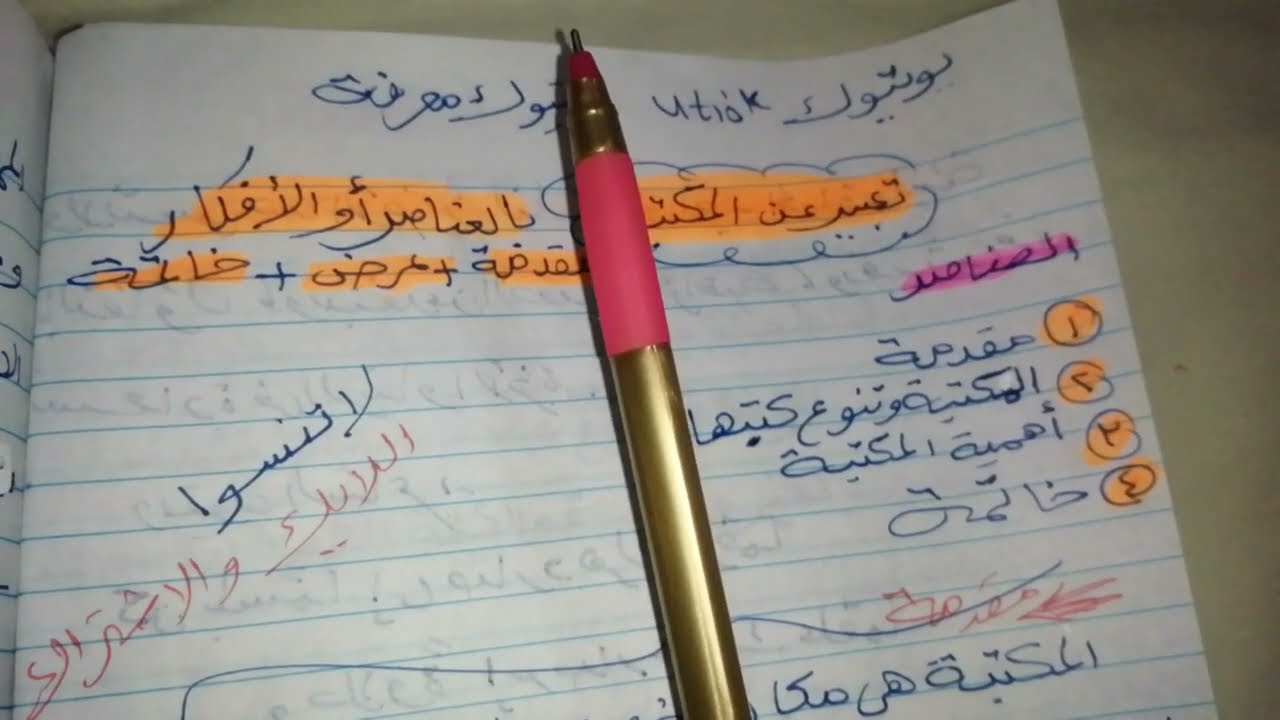 يوتيوك utiok يتيوك معرفة
تعبير عن المكتبة بالعناصر أو الأفكار
مقدمة + عرض + خاتمة
العناصر
١ مقدمة
٢ المكتبة وتنوع كتبها
٣ أهمية المكتبة
٤ خاتمة
لا تنسوا
اللايك والاشتراك
مقدمة
المكتبة هي مكا